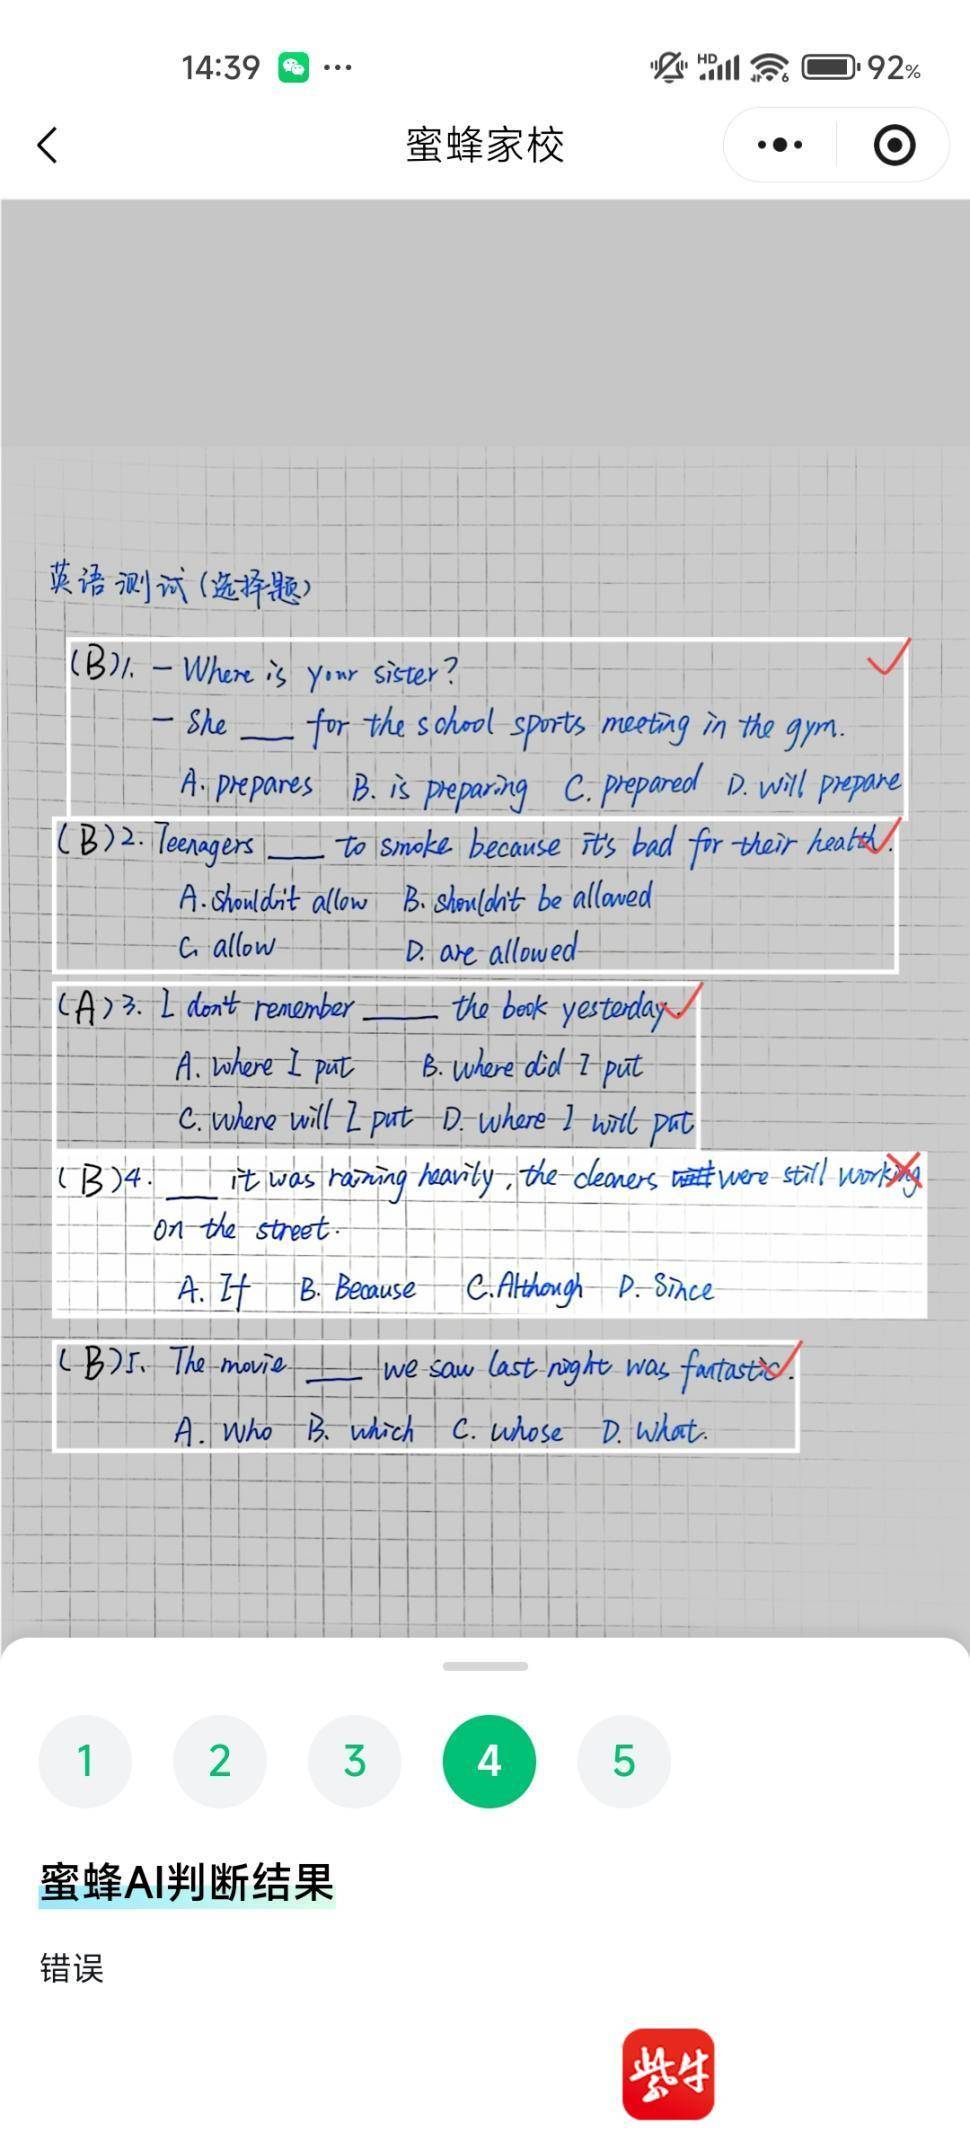 14:39 ... HD 6 92%
蜜蜂家校
英语测试(选择题)
(B)1. - Where is your sister?
- She ___ for the school sports meeting in the gym.
A. prepares B. is preparing C. prepared D. will prepare
(B)2. Teenagers ___ to smoke because it's bad for their health.
A. shouldn't allow B. shouldn't be allowed
C. allow D. are allowed
(A)3. I don't remember ___ the book yesterday.
A. where I put B. where did I put
C. where will I put D. where I will put
(B)4. ___ it was raining heavily, the cleaners were still working
on the street.
A. If B. Because C. Although D. Since
(B)5. The movie ___ we saw last night was fantastic.
A. who B. which C. whose D. what.
1 2 3 4 5
蜜蜂AI判断结果
错误
紫牛